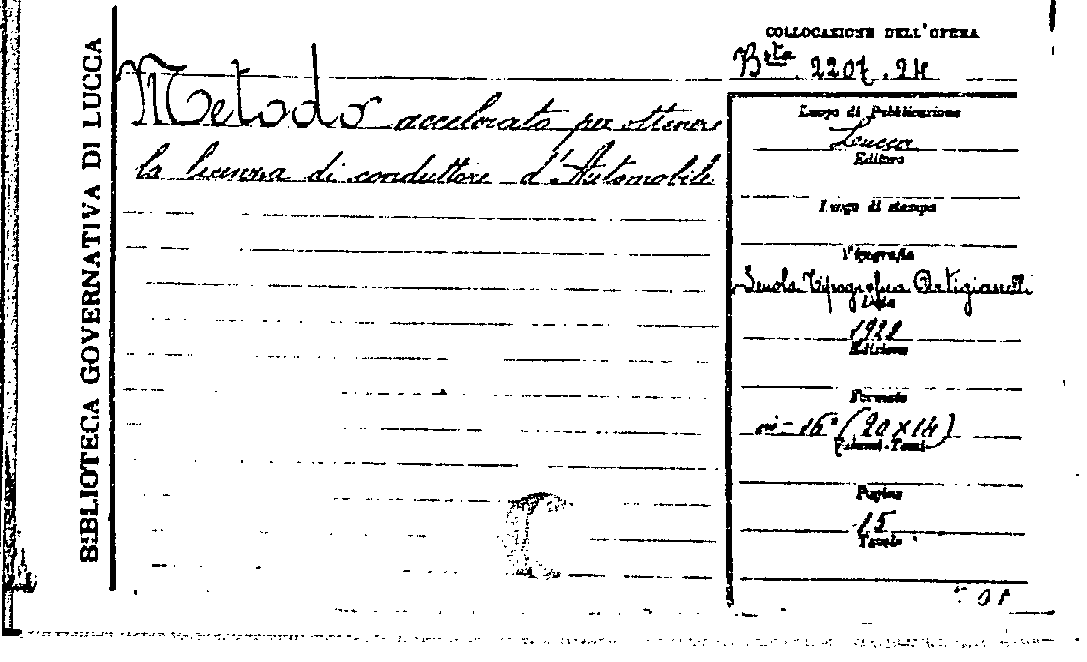 BIBLIOTECA GOVERNATIVA DI LUCCA
COLLOCAZIONE DELL'OPERA
Bta. 2207.24
Metodo accelerato per ottenere
la licenza di conduttore d'Automobile
Luogo di Pubblicazione
Lucca
Editore
Luogo di stampa
Tipografia
Scuola Tipografica Artigianelli
Data
Edizione
Formato
in-16° (20×14)
Volumi-Tomi
Pagine
15
Tavole